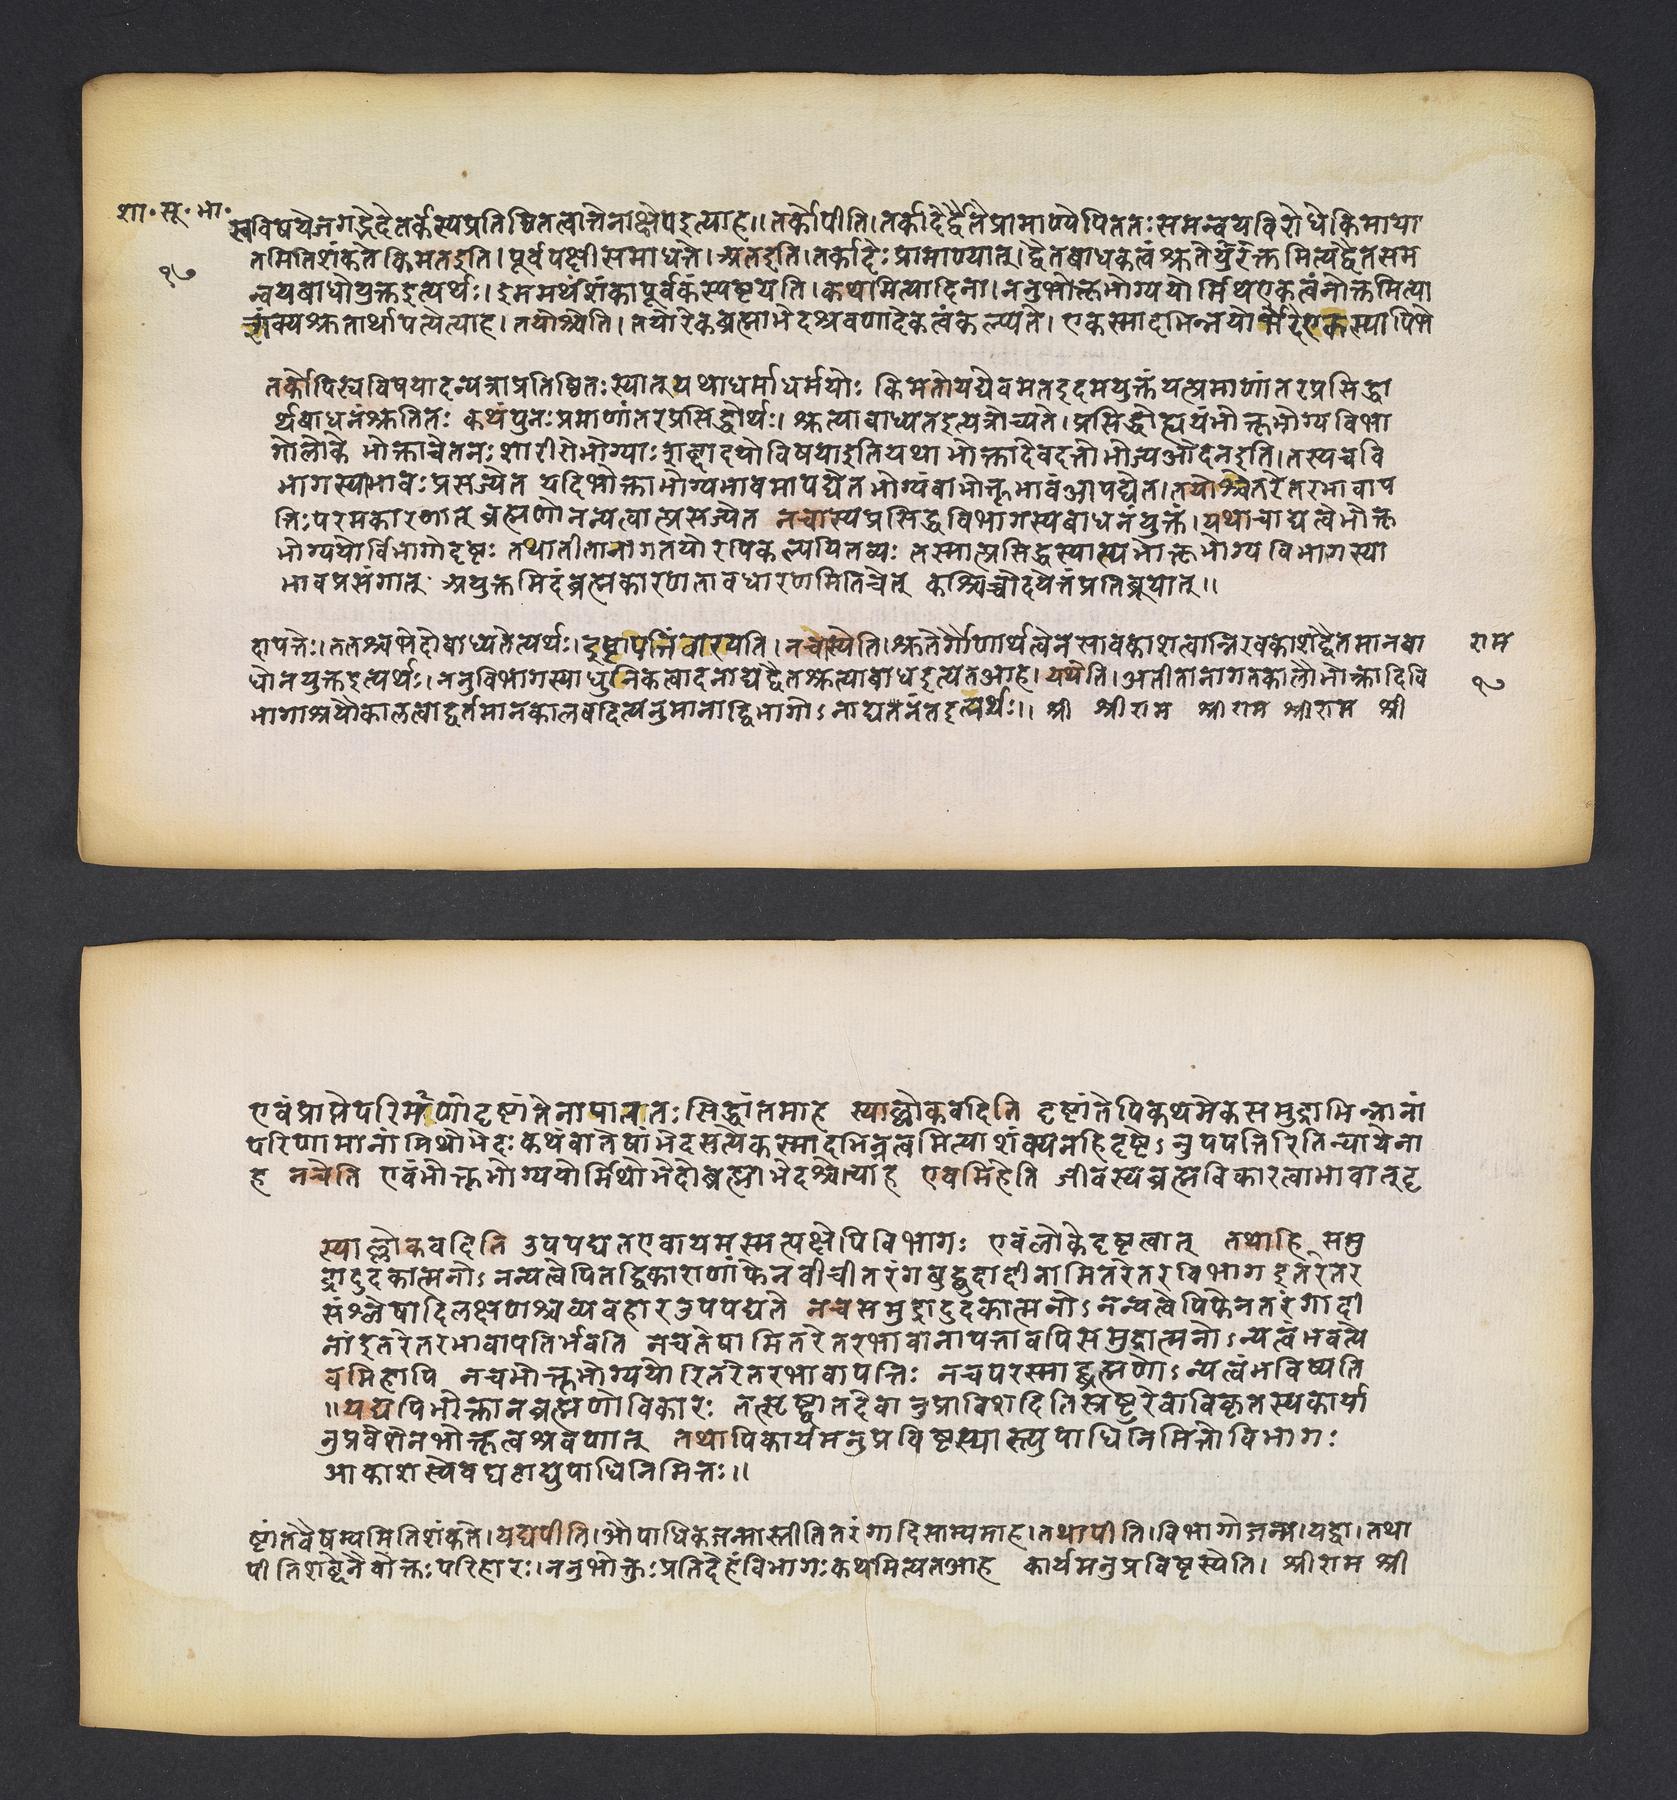 शा॰ सू॰ भा॰
१७
स्वविषयेजगद्भेदेतर्कस्यप्रतिष्ठितत्वात्तेनाक्षेपइत्याह॥तर्कोपीति।तर्कादेर्द्वैतेप्रामाण्येपिततःसमन्वयविरोधेकिमाया
तमितिशंकतेकिमतइति।पूर्वपक्षीसमाधत्ते।अतइति।तर्कादेःप्रामाण्यात्।द्वैतबाधकत्वंश्रुतेर्युरक्तमित्यद्वैतसम
न्वयबाधोयुक्तइत्यर्थः।इममर्थंशंकापूर्वकंस्पष्टयति।कथमित्यादिना।ननुभोक्तृभोग्ययोर्मिथएकत्वंनोक्तमित्या
शंक्यश्रुतार्थापत्येत्याह।तयोश्चेति।तयोरेकब्रह्माभेदश्रवणादेकत्वंकल्प्यते।एकस्मादभिन्नयोर्भेदेएकस्यापिभे
तर्कोपिस्वविषयादन्यत्राप्रतिष्ठितःस्यात्यथाधर्माधर्मयोः किमतोयद्येवमतइदमयुक्तंयत्प्रमाणांतरप्रसिद्धा
र्थबाधनंश्रुतितः कथंपुनःप्रमाणांतरप्रसिद्धोर्थः।श्रुत्याबाध्यतइत्यत्रोच्यते।प्रसिद्धोह्ययंभोक्तृभोग्यविभा
गोलोके भोक्ताचेतनःशारीरोभोग्याःशब्दादयोविषयाइतियथाभोक्तादेवदत्तोभोज्यओदनइति।तस्यचवि
भागस्याभावःप्रसज्येत यदिभोक्ताभोग्यभावमापद्येतभोग्यंवाभोक्तृभावंआपद्येत।तयोश्चेतरेतरभावाप
त्तिःपरमकारणात् ब्रह्मणोनन्यत्वात्प्रसज्येत नचास्यप्रसिद्धविभागस्यबाधनंयुक्तं।यथाचाद्यत्वेभोक्तृ
भोग्ययोर्विभागोदृष्टः तथातीतानागतयोरपिकल्पयितव्यः तस्मात्प्रसिद्धस्यास्यभोक्तृभोग्यविभागस्या
भावप्रसंगात् अयुक्तमिदंब्रह्मकारणतावधारणमितिचेत् कश्चिच्चोदयेत्तंप्रतिब्रूयात्॥
दापत्तेः।ततश्चभेदोबाध्येतेत्यर्थः।इष्टापत्तिंवारयति।नचास्येति।श्रुतेर्गौणार्थत्वेनसावकाशत्वान्निरवकाशद्वैतमानबा
धोनयुक्तइत्यर्थः।ननुविभागस्याधुनिकत्वादनाद्यद्वैतश्रुत्याबाधइत्यतआह।यथेति।अतीतानागतकालौभोक्तादिवि
भागाश्रयौकालत्वाद्वर्तमानकालवदित्यनुमानाद्विभागोऽनाद्यतनंतइत्यर्थः।। श्री श्रीराम श्रीराम श्रीराम श्री
राम
१७
एवंप्राप्तेपरिमाणोदृष्टांतेनापाततःसिद्धांतमाह स्याल्लोकवदिति दृष्टांतेपिकथमेकसमुद्राभिन्नानां
परिणामानांमिथोभेदःकथंवातेषांभेदसत्येकस्मादभिन्नत्वमित्याशंक्यनहिदृष्टेऽनुपपत्तिरितिन्यायेना
ह नचेति एवंभोक्तृभोग्ययोर्मिथोभेदोब्रह्माभेदश्चेत्याह एवमिहेति जीवस्यब्रह्मविकारत्वाभावात्दृ
स्याल्लोकवदिति उपपद्यतएवायमस्मत्पक्षेपिविभागः एवंलोकेदृष्टत्वात् तथाहि समु
द्रादुदकात्मनोऽनन्यत्वेपितद्विकाराणांफेनवीचीतरंगबुद्बुदादीनामितरेतरविभागइतरेतर
संश्लेषादिलक्षणश्चव्यवहारउपपद्यते नचसमुद्रादुदकात्मनोऽनन्यत्वेपिफेनतरंगादी
नांइतरेतरभावापतिर्भवति नचतेषामितरेतरभावानापत्तावपिसमुद्रात्मनोऽन्यत्वंभवत्ये
वमिहापि नचभोक्तृभोग्ययोरितरेतरभावापत्तिः नचपरस्माद्ब्रह्मणोऽन्यत्वंभविष्यति
॥यद्यपिभोक्तानब्रह्मणोविकारः तत्सृष्ट्वातदेवानुप्राविशदितिस्रष्टुरेवाविकृतस्यकार्या
नुप्रवेशेनभोक्तृत्वश्रवणात् तथापिकार्यमनुप्रविष्टस्यास्त्युपाधिनिमित्तोविभागः
आकाशस्येवघटाद्युपाधिनिमित्तः॥
ष्टांतवैषम्यमितिशंकते।यद्यपीति।औपाधिकंजन्मास्तीतितरंगादिसाम्यमाह।तथापीति।विभागोजन्म।यद्वा।तथा
पीतिशब्देनैवोक्तःपरिहारः।ननुभोक्तुःप्रतिदेहंविभागःकथमित्यतआह कार्यमनुप्रविष्टस्येति। श्रीराम श्री